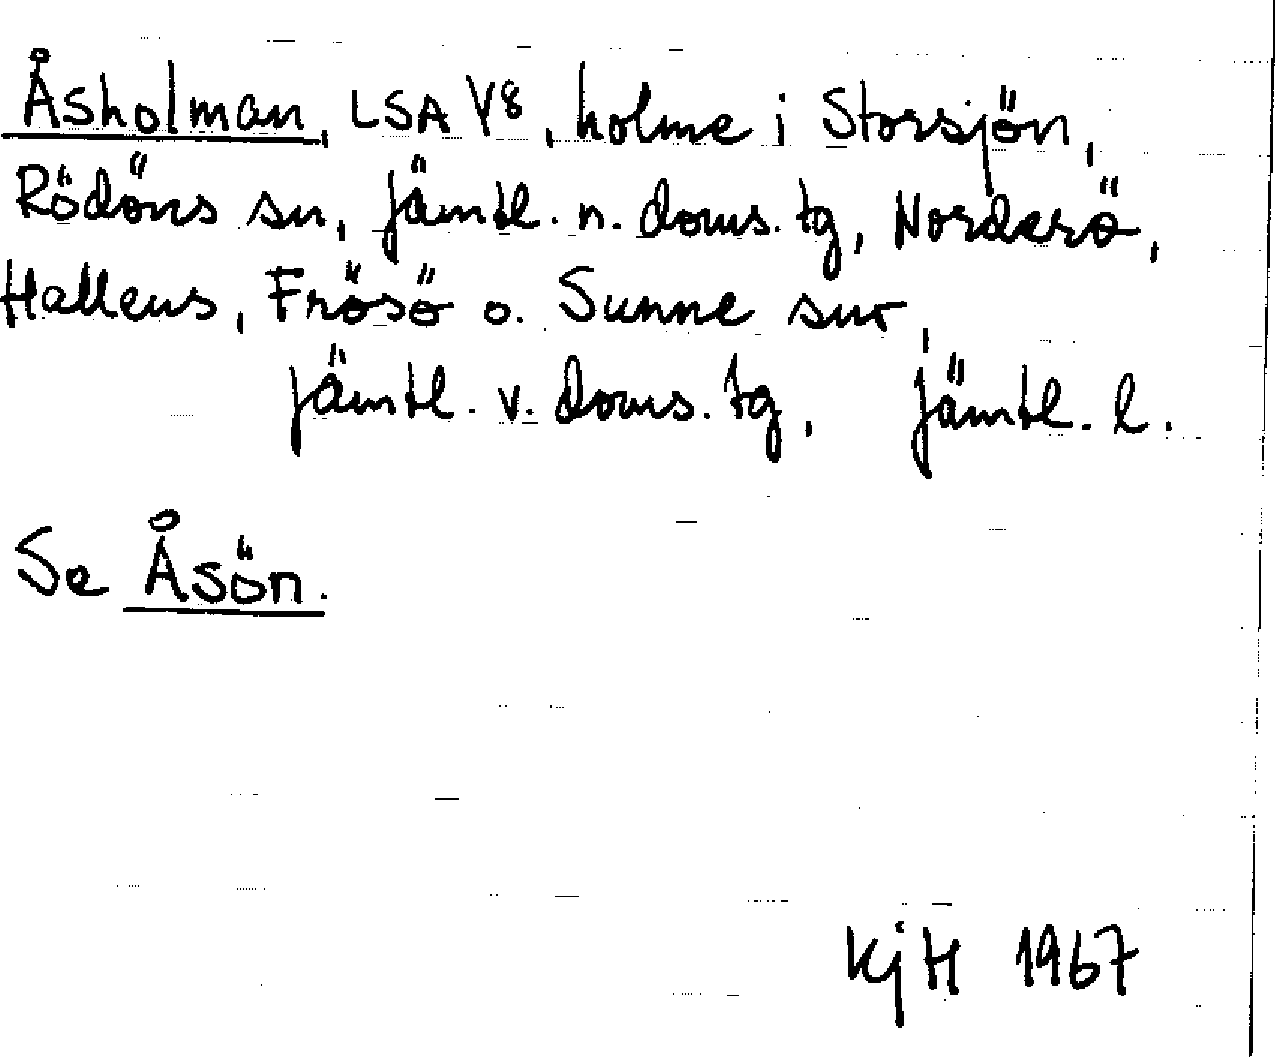 Åsholman, LSA Y8, holme i Storsjön,
Rödöns sn, Jämtl. n. doms. tg, Norderö,
Hallens, Frösö o. Sunne snr,
Jämtl. v. doms. tg, Jämtl. l.
Se Åsön.
KjH 1967